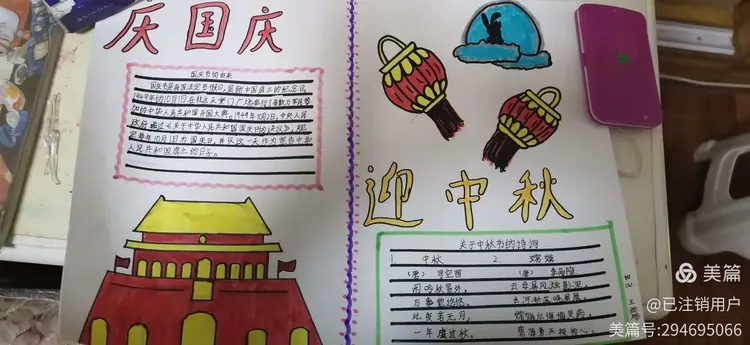 庆国庆
国庆节的由来
国庆节是我国法定节假日,是新中国成立的纪念日。
1949年的10月1日在北京天安门广场举行了有数万军民参
加的中华人民共和国开国大典。1949年10月2日,中央人民
政府通过《关于中华人民共和国国庆日的决议》,规
定每年10月1日为国庆日,并以这一天作为宣告中华
人民共和国成立的日子。
迎中秋
关于中秋节的诗词
1. 中秋
(唐) 司空图
闲吟秋景外,
万事觉悠悠。
此夜若无月,
一年虚过秋。
2. 嫦娥
(唐) 李商隐
云母屏风烛影深,
长河渐落晓星沉。
嫦娥应悔偷灵药,
碧海青天夜夜心。
美篇
@已注销用户
美篇号:294695066